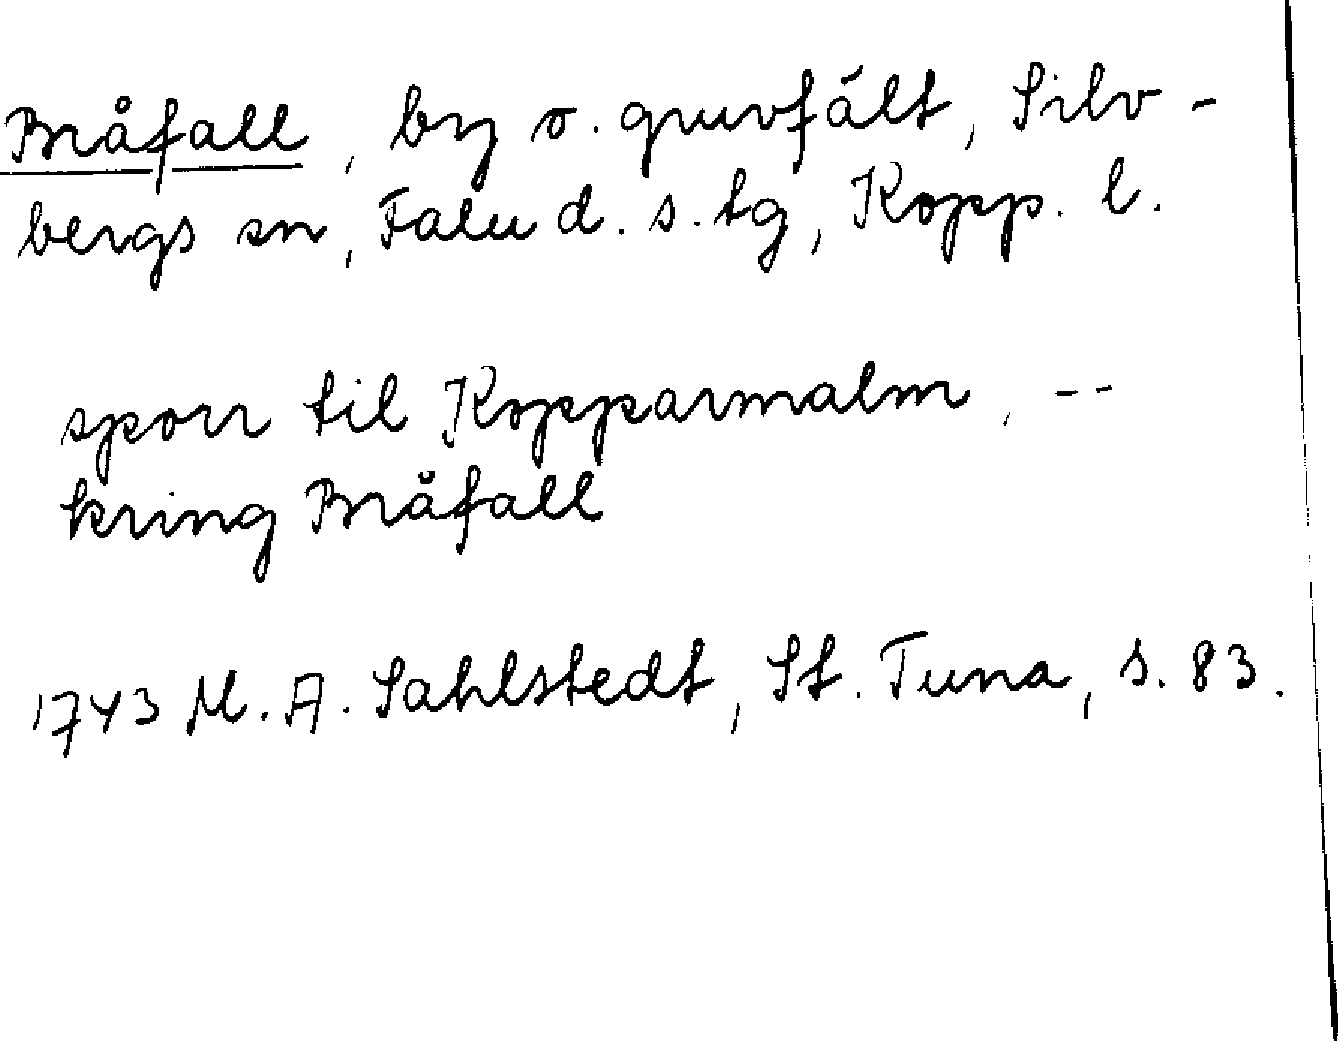 Bråfall, by o. gruvfält, Silv-
bergs sn, Falu d. s. tg, Kopp. l.
sporr til Kopparmalm, --
kring Bråfall
1743 M. A. Sahlstedt, St. Tuna, s. 83.